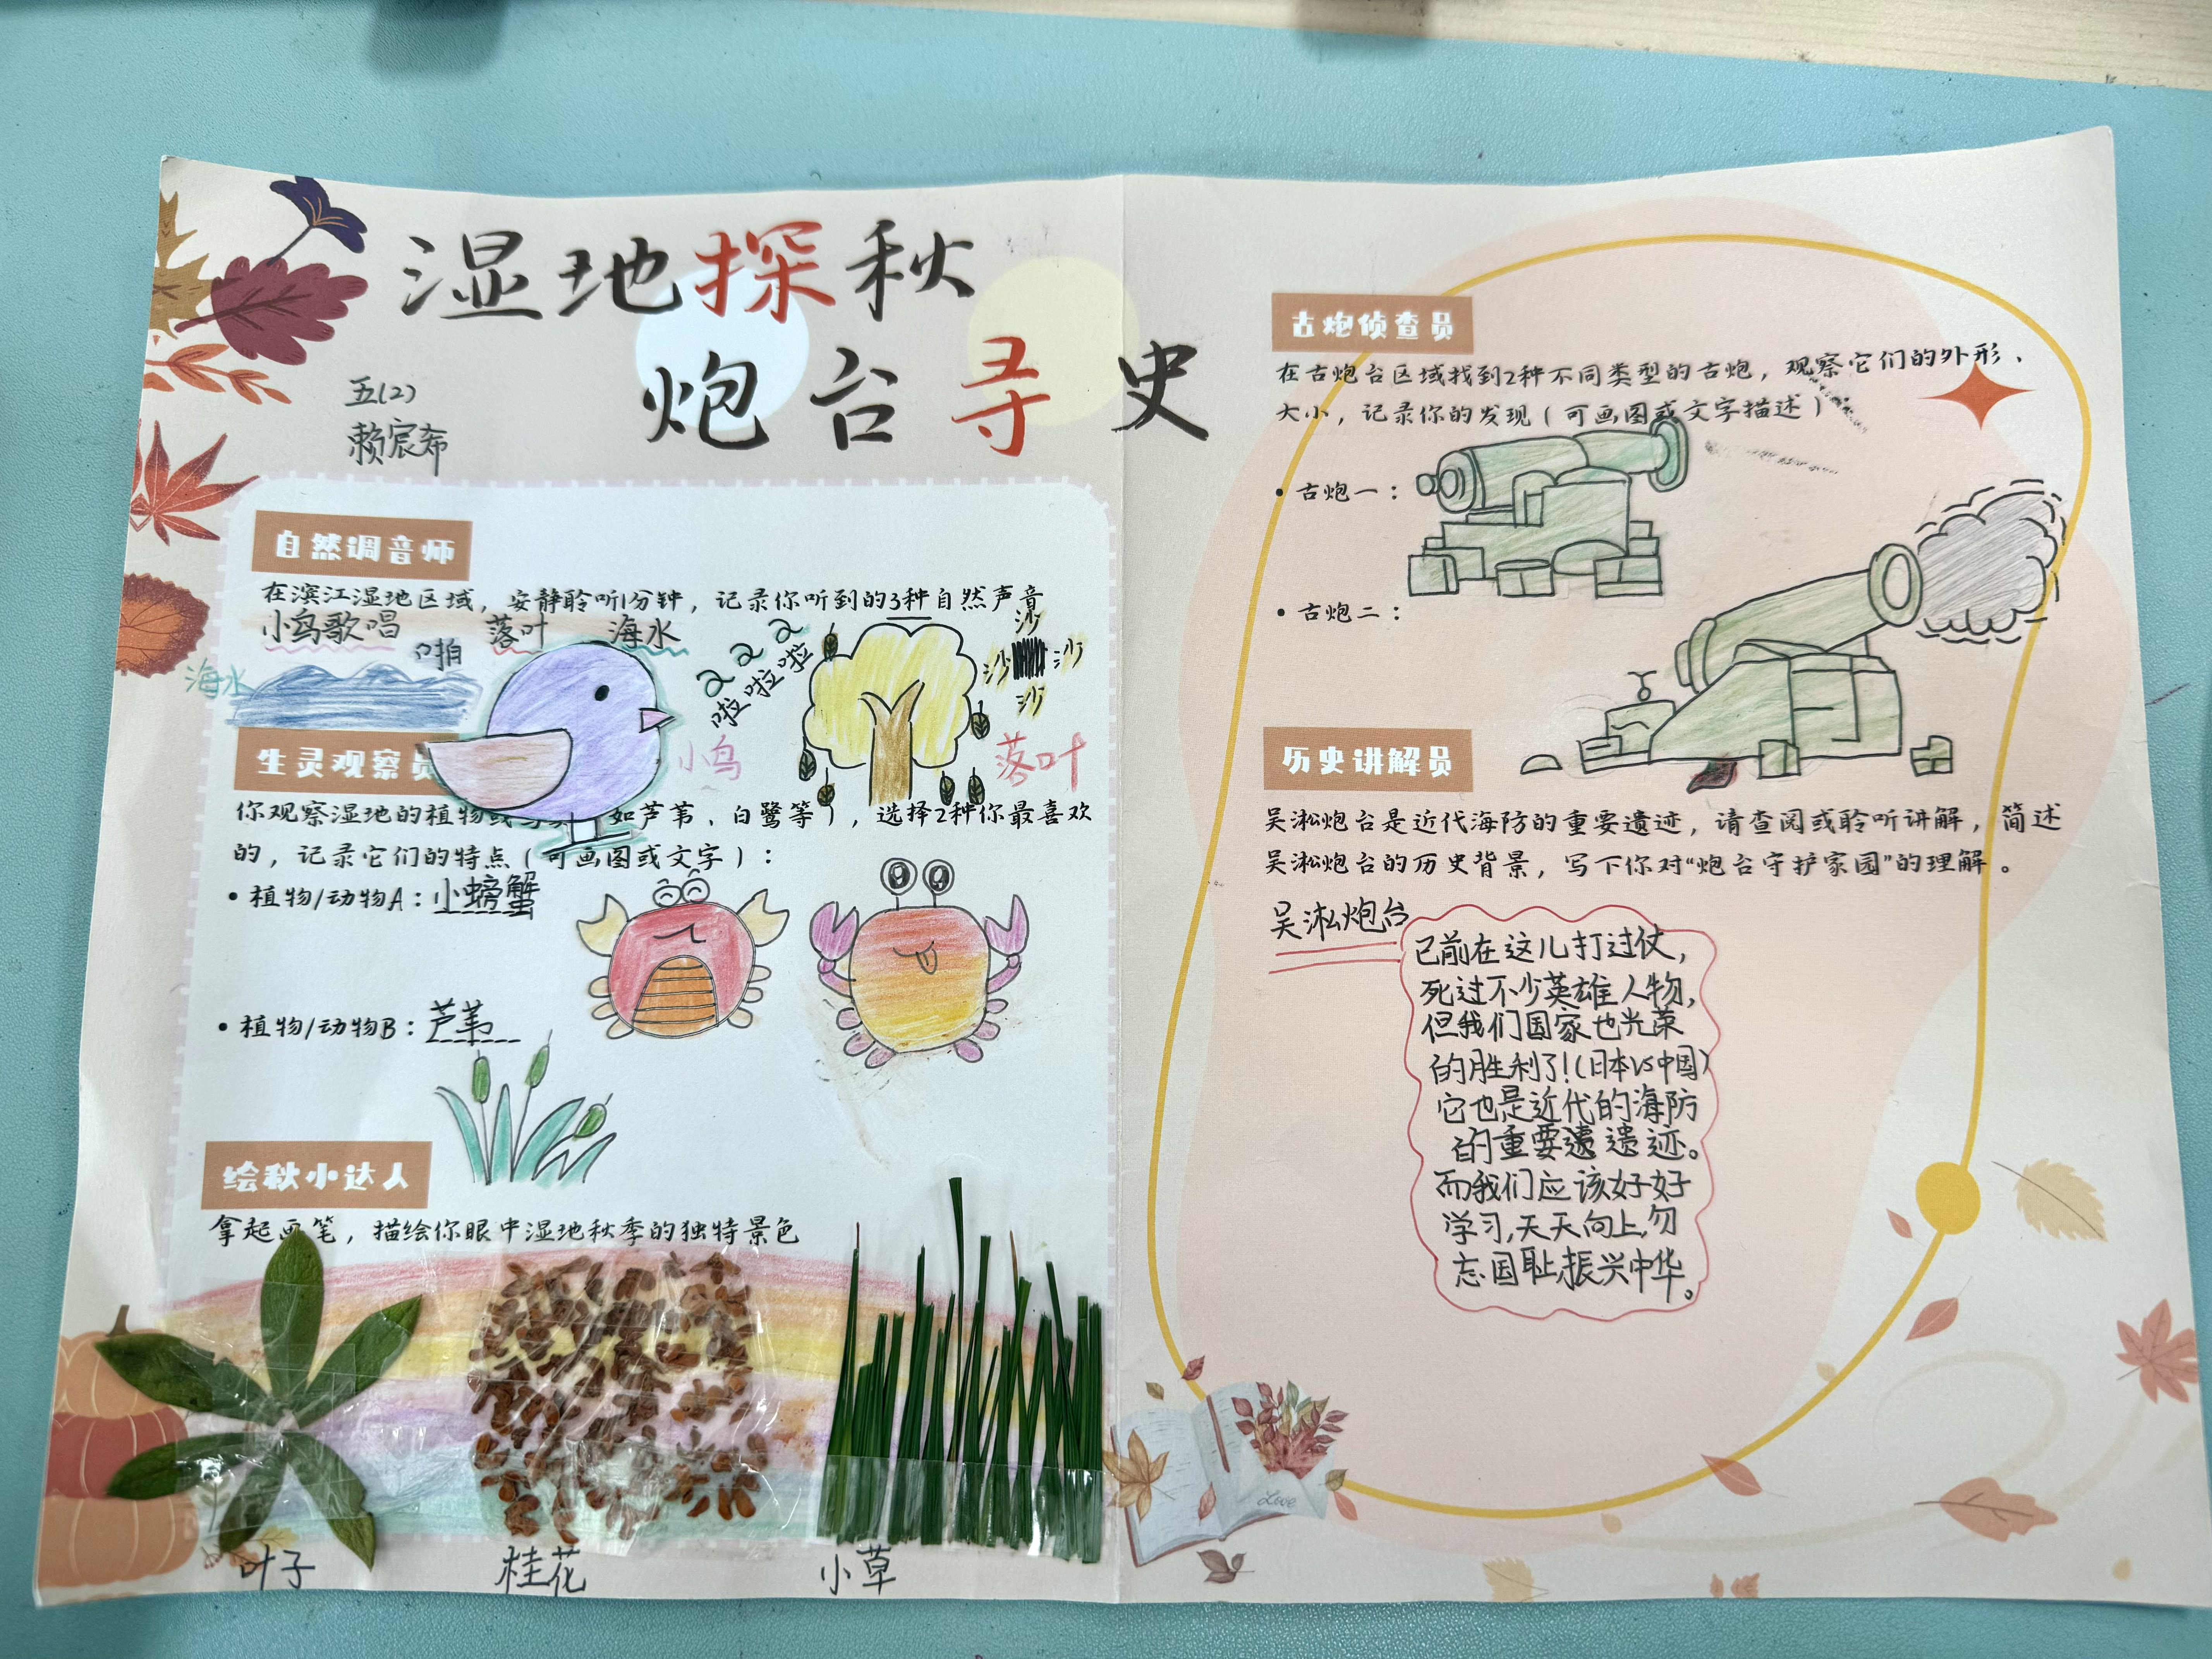 湿地探秋
炮台寻史
五(2)
赖宸希
自然调音师
在滨江湿地区域，安静聆听1分钟，记录你听到的3种自然声音
小鸟歌唱 落叶 海水
啪
海水
啦啦啦
小鸟
沙
沙 沙
沙
落叶
生灵观察员
你观察湿地的植物或 如芦苇、白鹭等），选择2种你最喜欢
的，记录它们的特点（可画图或文字）：
• 植物/动物A：小螃蟹
• 植物/动物B：芦苇
绘秋小达人
拿起画笔，描绘你眼中湿地秋季的独特景色
叶子 桂花 小草
古炮侦查员
在古炮台区域找到2种不同类型的古炮，观察它们的外形、
大小，记录你的发现（可画图或文字描述）：
• 古炮一：
• 古炮二：
历史讲解员
吴淞炮台是近代海防的重要遗迹，请查阅或聆听讲解，简述
吴淞炮台的历史背景，写下你对“炮台守护家园”的理解。
吴淞炮台
已前在这儿打过仗，
死过不少英雄人物，
但我们国家也光荣
的胜利了！(日本VS中国)
它也是近代的海防
的重要遗遗迹。
而我们应该好好
学习，天天向上，勿
忘国耻，振兴中华。
Love